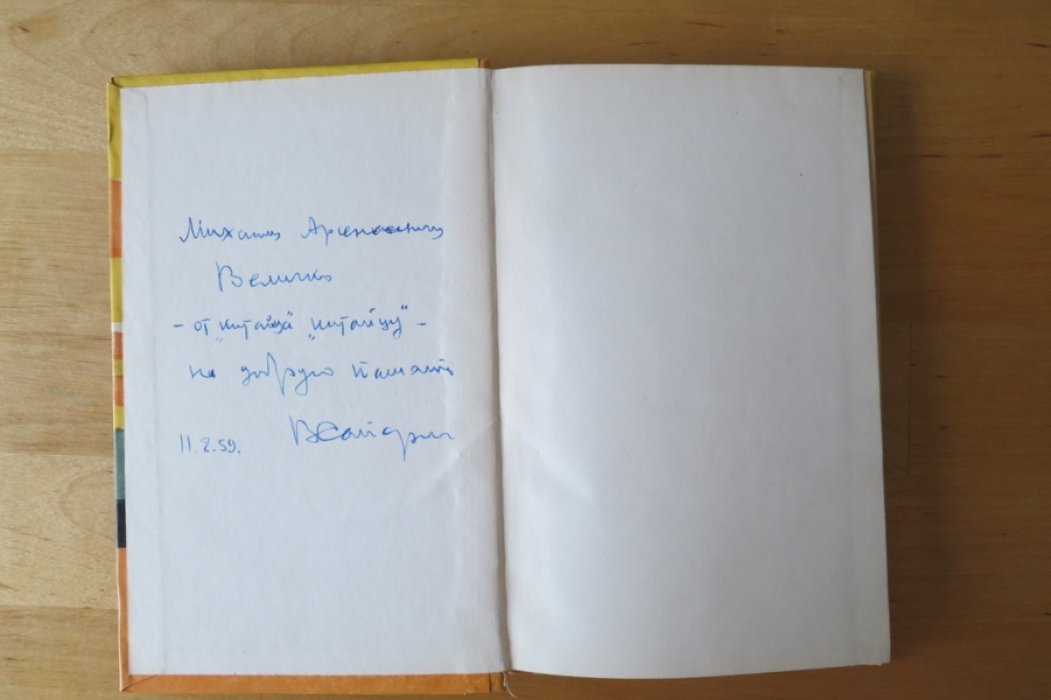 Михаилу Арсеньевичу
Величко
– от „китайца" „китайцу" –
на добрую память
11.2.59.